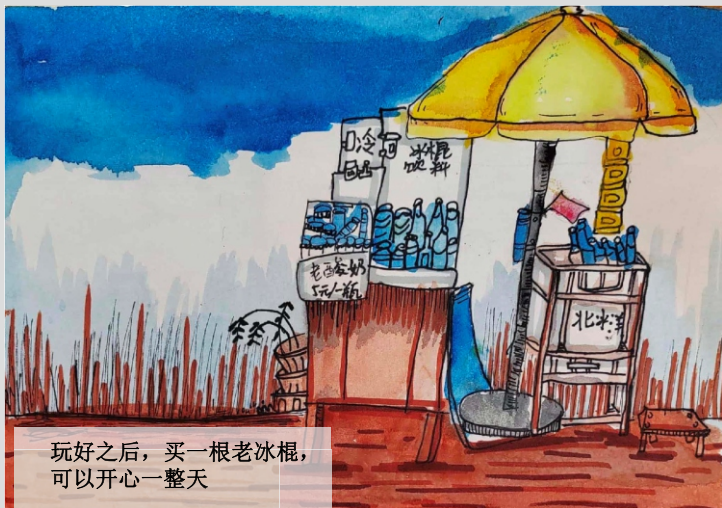 冷
冰棍
饮料
老酸奶
5元/瓶
北冰洋
玩好之后，买一根老冰棍，
可以开心一整天